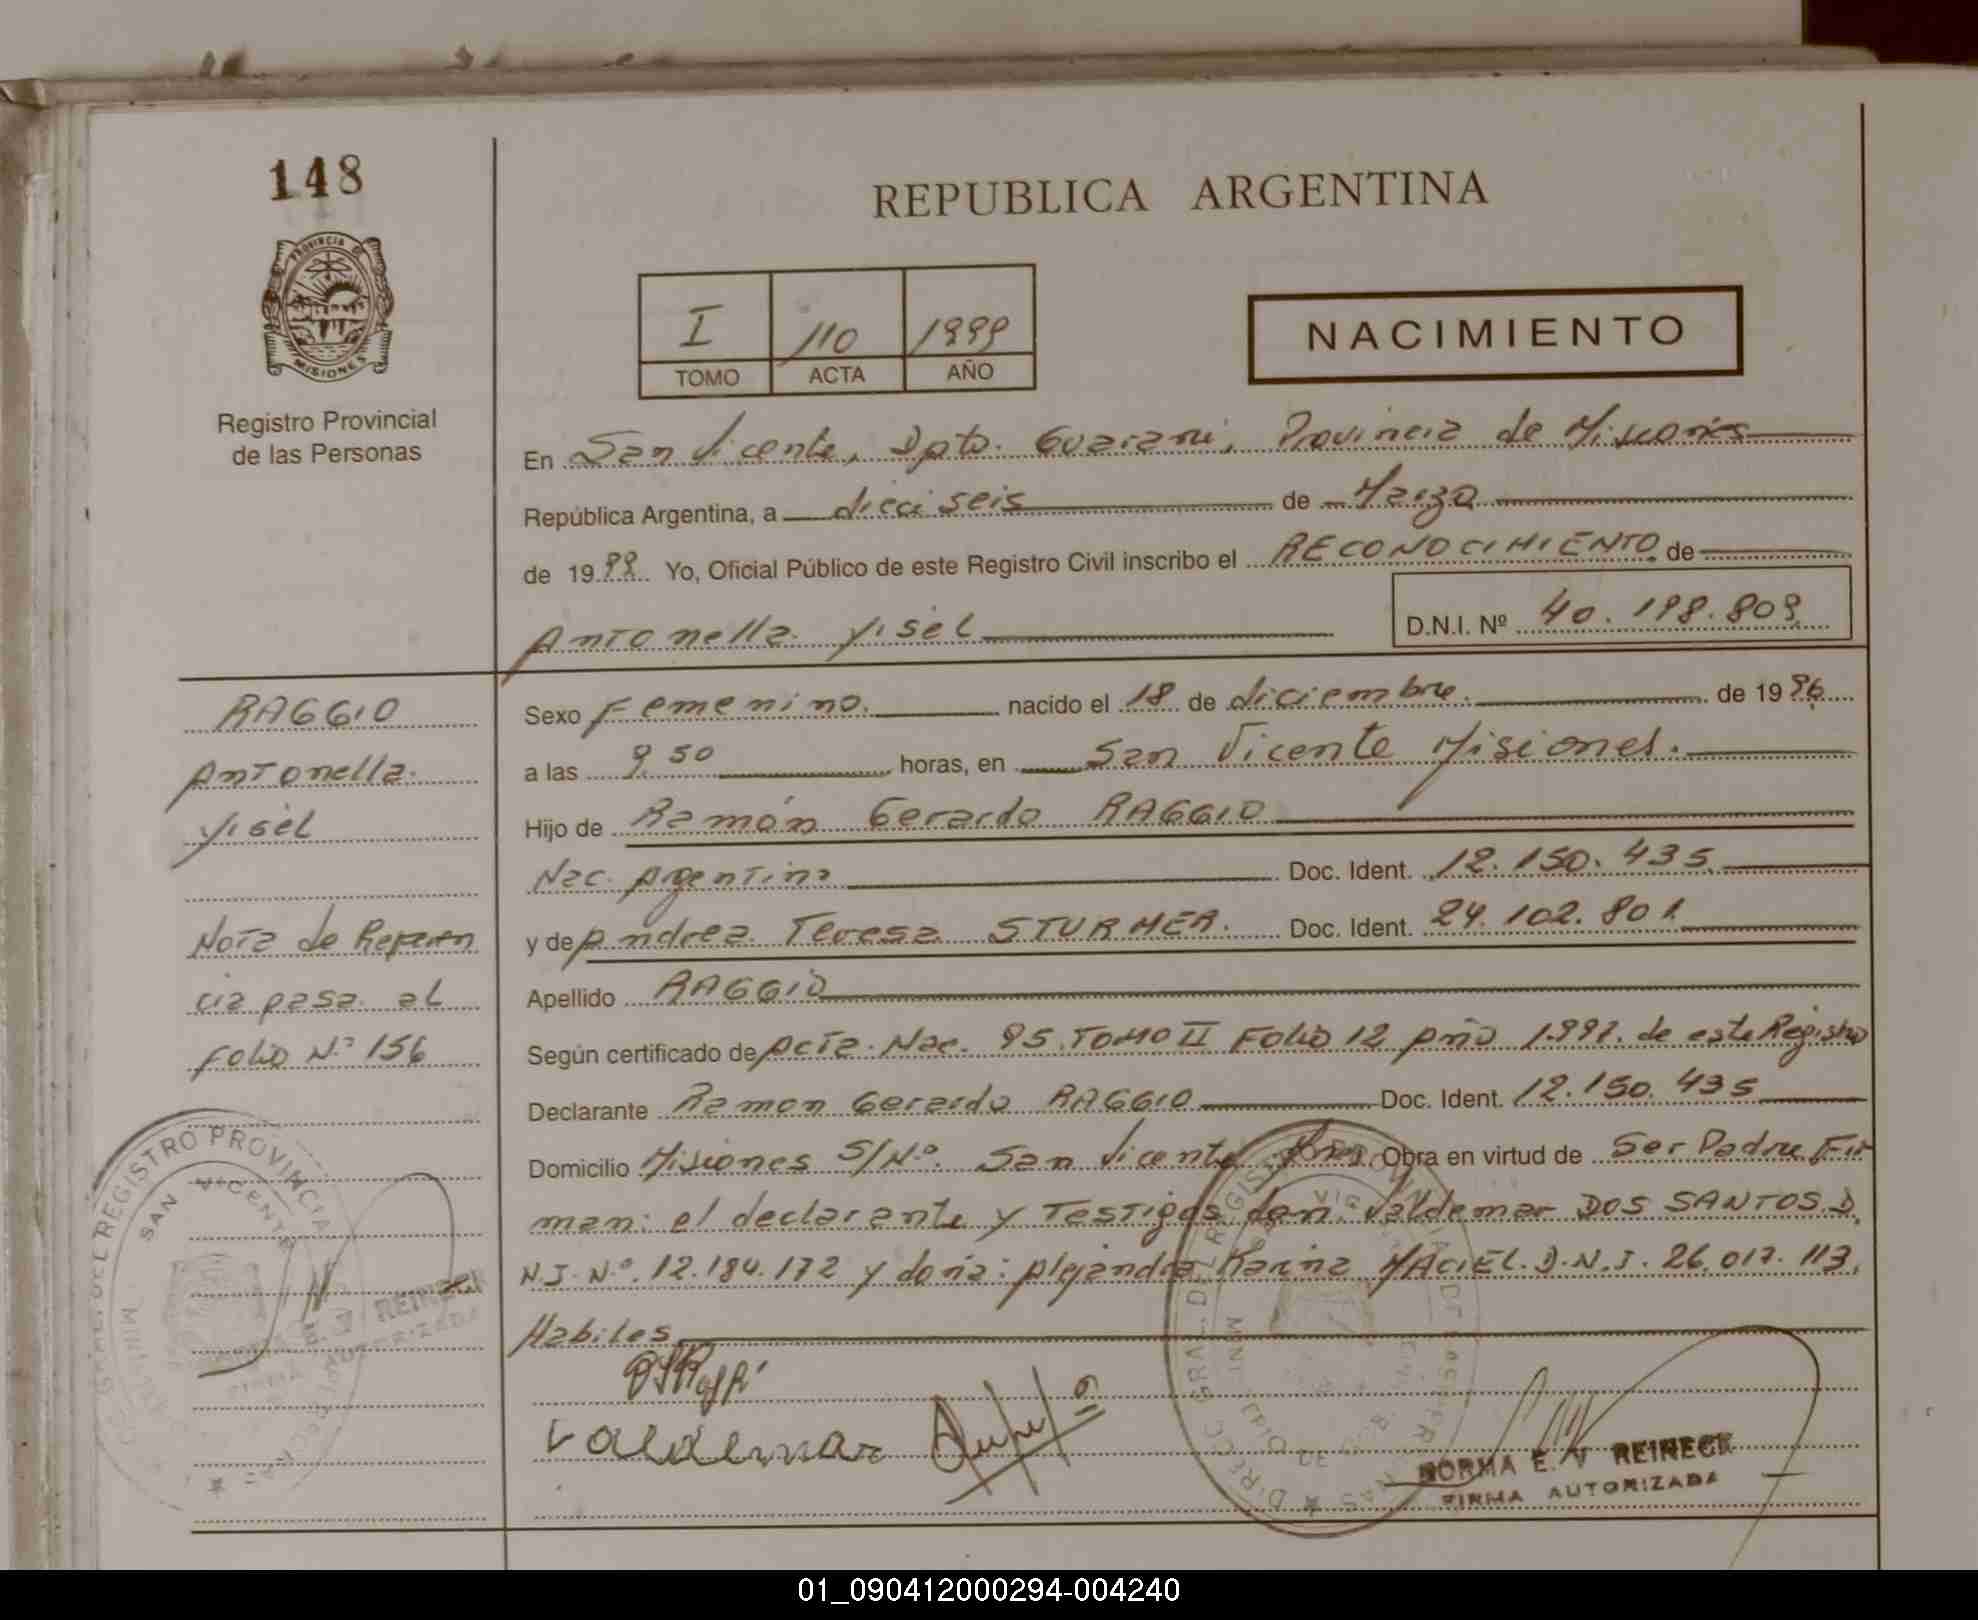 148
REPUBLICA ARGENTINA
PROVINCIA D
MISIONES
Registro Provincial
de las Personas
I 110 1999
TOMO ACTA AÑO
NACIMIENTO
En San Vicente, Dpto. Guarani, Provincia de Misiones
República Argentina, a dieciseis de Marzo
de 1999 Yo, Oficial Público de este Registro Civil inscribo el RECONOCIMIENTO de
Antonella Yisel D.N.I. Nº 40.198.809
RAGGIO
Antonella
Yisel
Nota de Referen
cia pasa al
Folio N.º 156
Sexo Femenino. nacido el 18 de diciembre. de 1996
a las 9,50 horas, en San Vicente Misiones.
Hijo de Ramón Gerardo RAGGIO
Nac. Argentina Doc. Ident. 12.150.435
y de Andrea Teresa STURMER. Doc. Ident. 24.102.801
Apellido RAGGIO
Según certificado de Acta. Nac. 95. TOMO II Folio 12 Año 1.997. de este Registro
Declarante Ramon Gerardo RAGGIO Doc. Ident. 12.150.435
Domicilio Misiones S/N.º San Vicente Mnes. Obra en virtud de Ser Padre Fir
man: el declarante y Testigos don: Valdemar DOS SANTOS D.
N.I. N.º 12.184.172 y doña: Alejandra Karina MACIEL. D.N.I. 26.017.113.
Habiles
Valdemar
NORMA E. V REIRECK
FIRMA AUTORIZADA
01_090412000294-004240